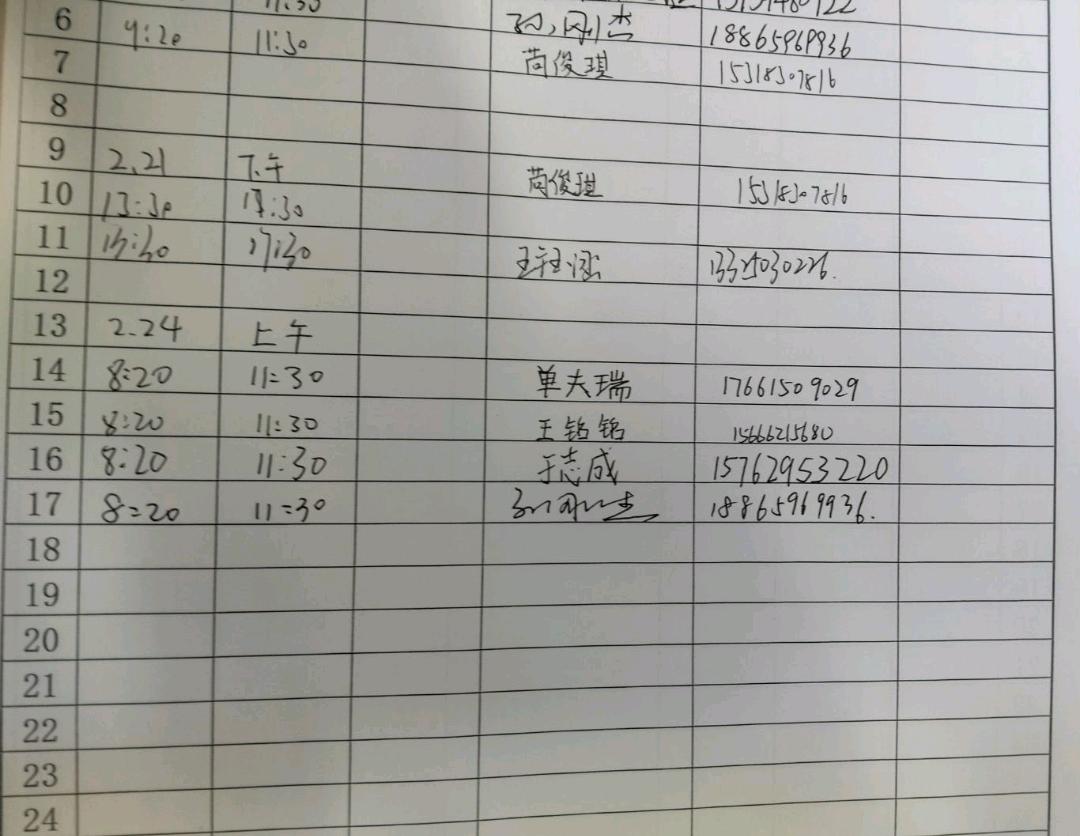 11:30
6 9:20 11:30 孙刚杰 18865969936
7 苘俊琪 15318307816
8
9 2.21 下午 苘俊琪 15318307816
10 13:30 17:30
11 13:30 17:30 13325030226.
12
13 2.24 上午
14 8:20 11:30 单夫瑞 17661509029
15 8:20 11:30 王铭铭 15666215680
16 8:20 11:30 于志成 15762953220
17 8:20 11:30 18865969936.
18
19
20
21
22
23
24